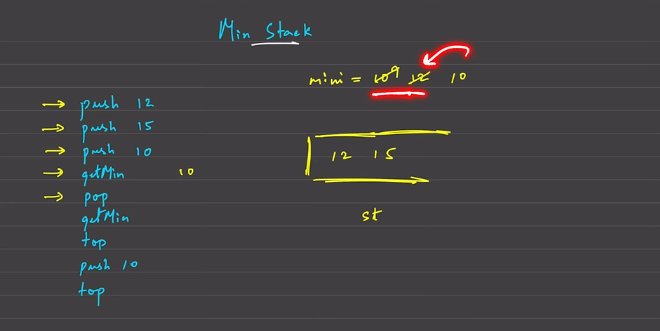 Min Stack
mini = 10⁹ 12 10
→ push 12
→ push 15
→ push 10
→ getMin 10
→ pop
getMin
top
push 10
top
12 15
st